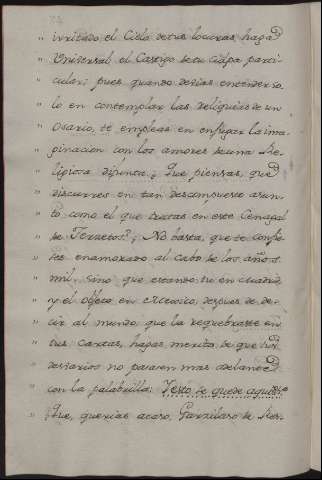 " irritado el Cielo de tus locuras, haga
" Universal el Castigo de tu culpa parti-
" cular; pues quando devias entender so-
" lo en contemplar las reliquias de un
" Osario, te empleas en ensuciar la ima-
" ginacion con los amores de una Re-
" ligiosa difunta. ¿Que piensas, que
" discurres en tan descompuesto asun-
" to como el que tratas en este Cenagal
" de Tercetos? ¿No basta, que te confie-
" ses enamorado al cabo de los años
" mil, sino que estando tu en Madrid,
" y el Objeto en Mexico, despues de de-
" cir al mundo, que la requebraste en
" tus Cartas, hagas merito de que tus
" desvarios no pasaron mas adelante
" con la palabrilla: Testo se quede aqui?
" ¿Que, querias acaso, Garzilaso de Re-